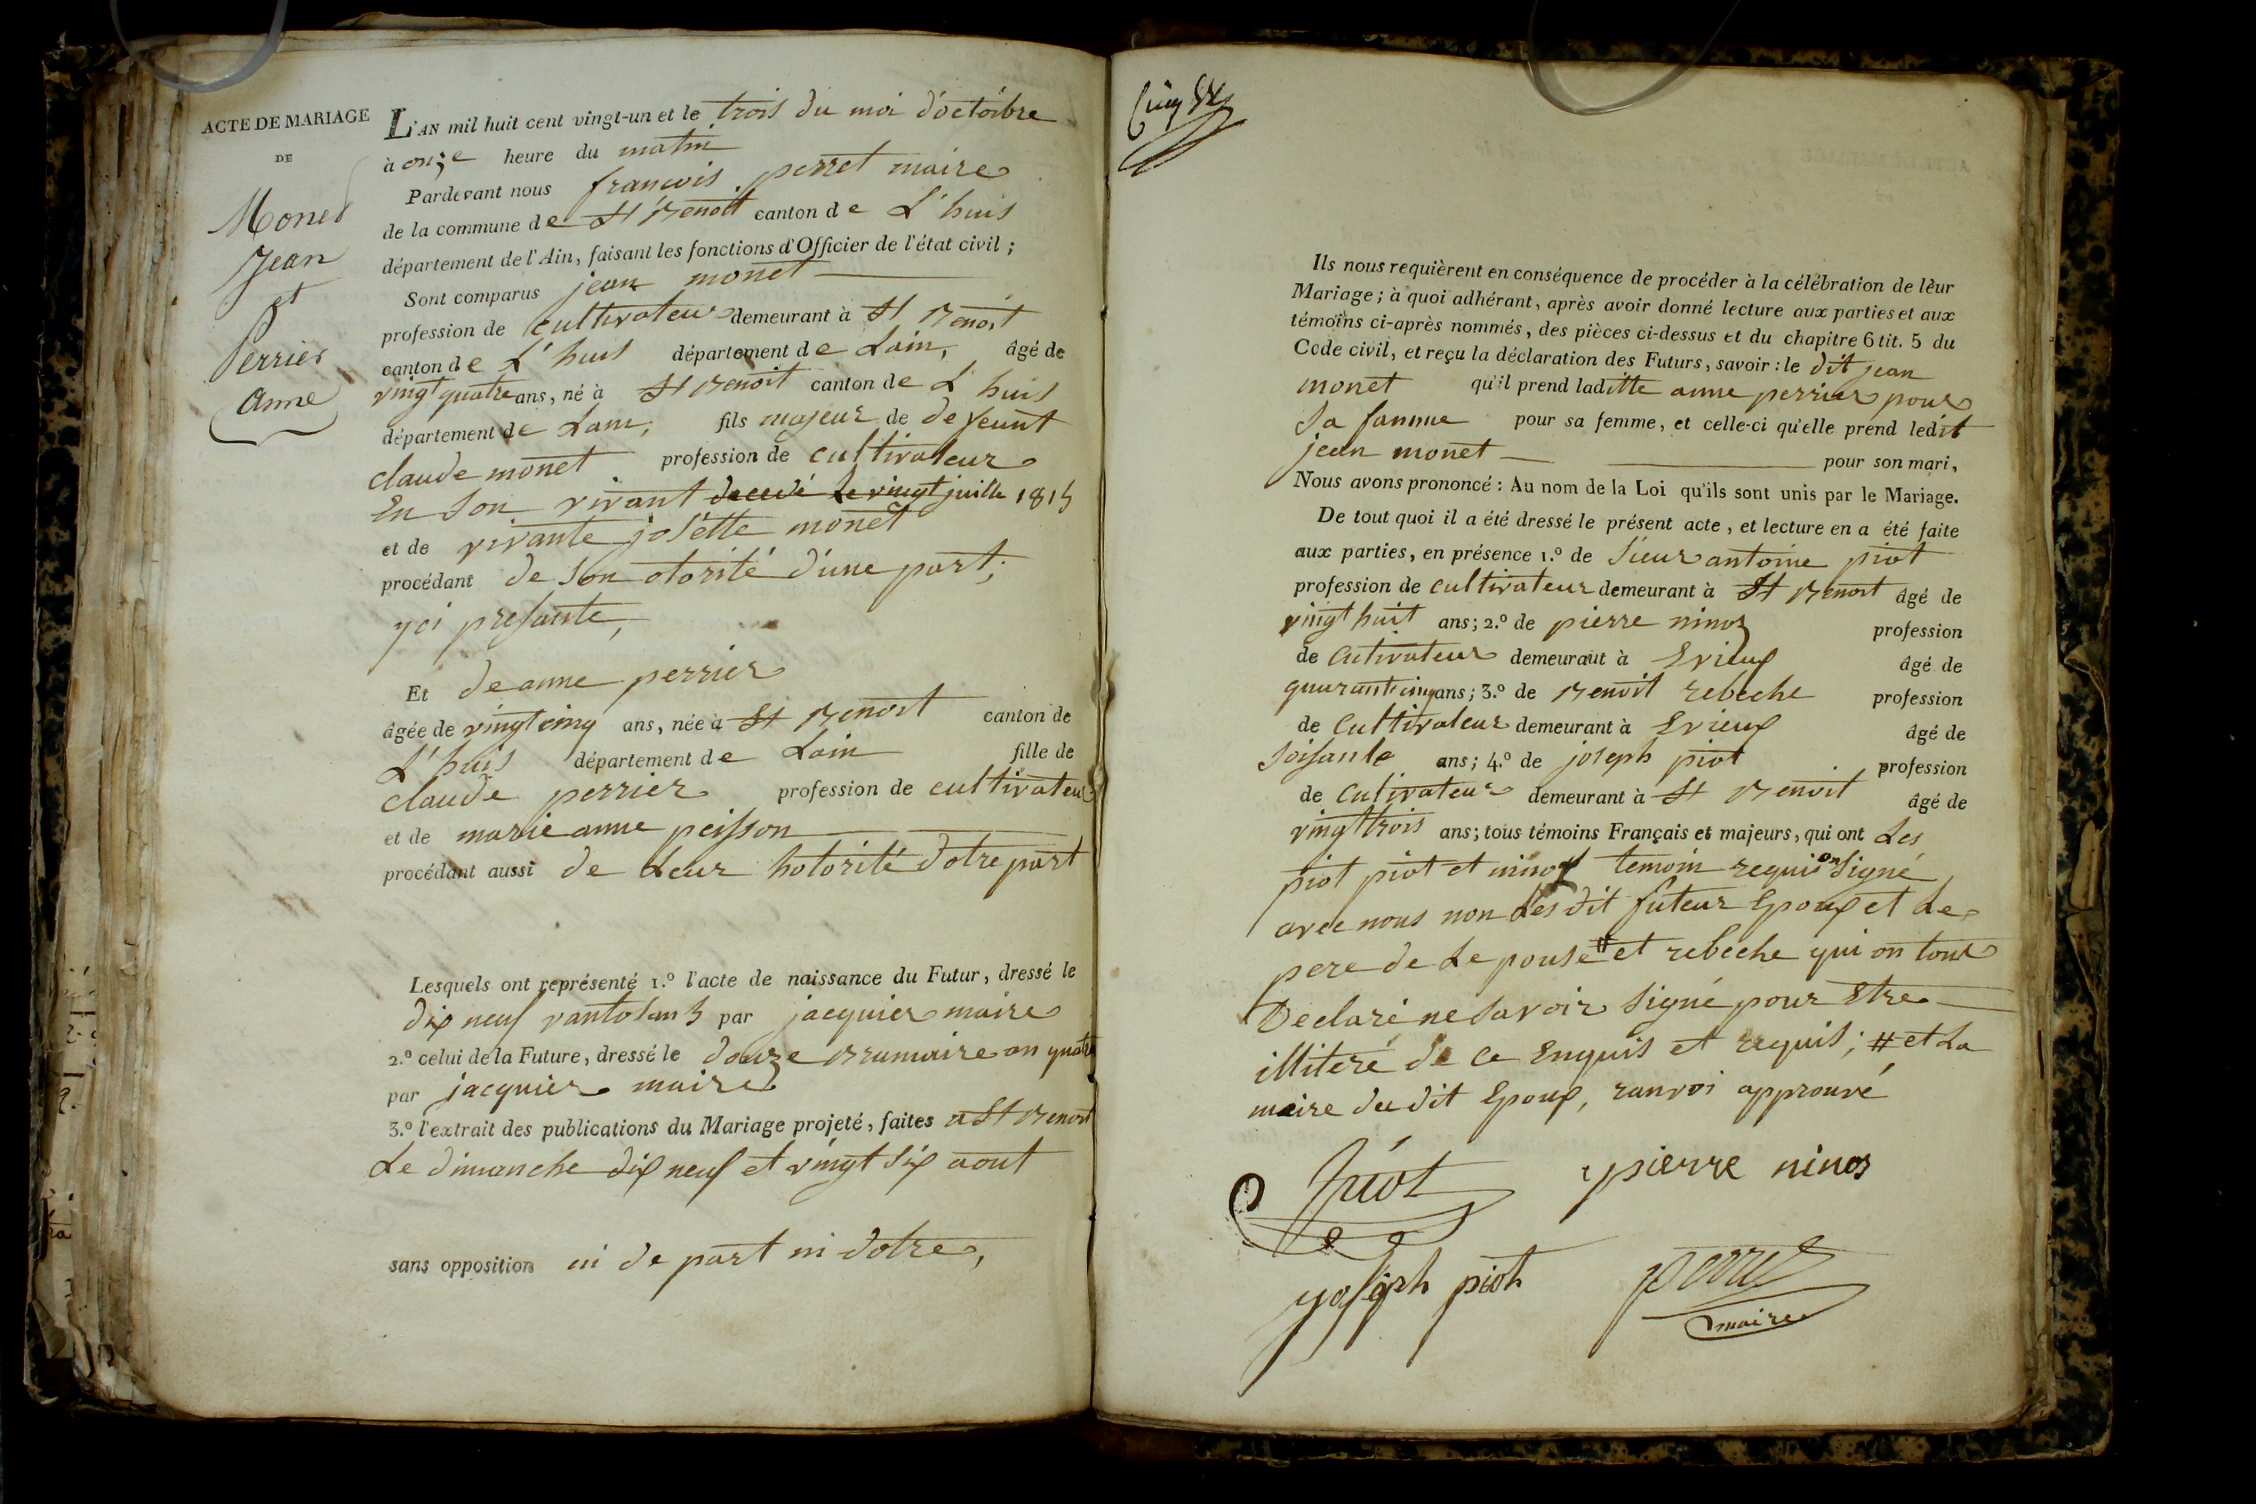 ACTE DE MARIAGE
DE
Monet
Jean
et
Perrier
Anne
L'AN mil huit cent vingt-un et le trois du moi d'octoibre
à onze heure du matin
Pardevant nous francois perret maire
de la commune de St Benoit canton de L'huis
département de l'Ain, faisant les fonctions d'Officier de l'état civil ;
Sont comparus jean monet
profession de cultivateur demeurant à St Benoit
canton de L'huis département de Lain, âgé de
vingt quatre ans, né à St Benoit canton de L'huis
département de Lain, fils majeur de defeunt
claude monet profession de cultivateur
En son vivant decedé le vingt juille 1815
et de vivante josette monet
procédant de son otorité d'une part;
yci presante,
Et de anne perrier
âgée de vingt cinq ans, née à St Benoit canton de
L'huis département de Lain fille de
claude perrier profession de cultivateur
et de marie anne peisson
procédant aussi de Leur hotorité d'otre part
Lesquels ont représenté 1.º l'acte de naissance du Futur, dressé le
dix neuf vantos an 5 par jacquier maire
2.º celui de la Future, dressé le douze Brumaire an quatre
par jacquier maire
3.º l'extrait des publications du Mariage projeté, faites a St Benoit
Le dimanche dix neuf et vingt six aout
sans opposition ni de part ni dotre,
Ils nous requièrent en conséquence de procéder à la célébration de leur
Mariage ; à quoi adhérant, après avoir donné lecture aux parties et aux
témoins ci-après nommés, des pièces ci-dessus et du chapitre 6 tit. 5 du
Code civil, et reçu la déclaration des Futurs, savoir : le dit jean
monet qu'il prend laditte anne perrier pour
sa famme pour sa femme, et celle-ci qu'elle prend ledit
jean monet pour son mari,
Nous avons prononcé : Au nom de la Loi qu'ils sont unis par le Mariage.
De tout quoi il a été dressé le présent acte, et lecture en a été faite
aux parties, en présence 1.º de sieur antoine piot
profession de cultivateur demeurant à St Benoit âgé de
vingt huit ans ; 2.º de pierre ninoz profession
de cutivateur demeurant à Evieux âgé de
quarante cinq ans ; 3.º de Benoit rebeche profession
de cultivateur demeurant à Evieux âgé de
soisante ans ; 4.º de joseph piot profession
de cutivateur demeurant à St Benoit âgé de
vingt trois ans ; tous témoins Français et majeurs, qui ont Les
piot piot et ninoz temoin requis on signé
avec nous non Les dit futeur Epoux et Le
pere de Le pouse # et rebeche qui on tout
Declaré ne savoir signé pour Etre
illiteré de ce Enquis et requis ; # et La
maire du dit Epoux, ranvoi approuvé
Piot pierre ninos
yoseph piot perret
maire